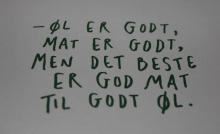 -ØL ER GODT,
MAT ER GODT,
MEN DET BESTE
ER GOD MAT
TIL GODT ØL.